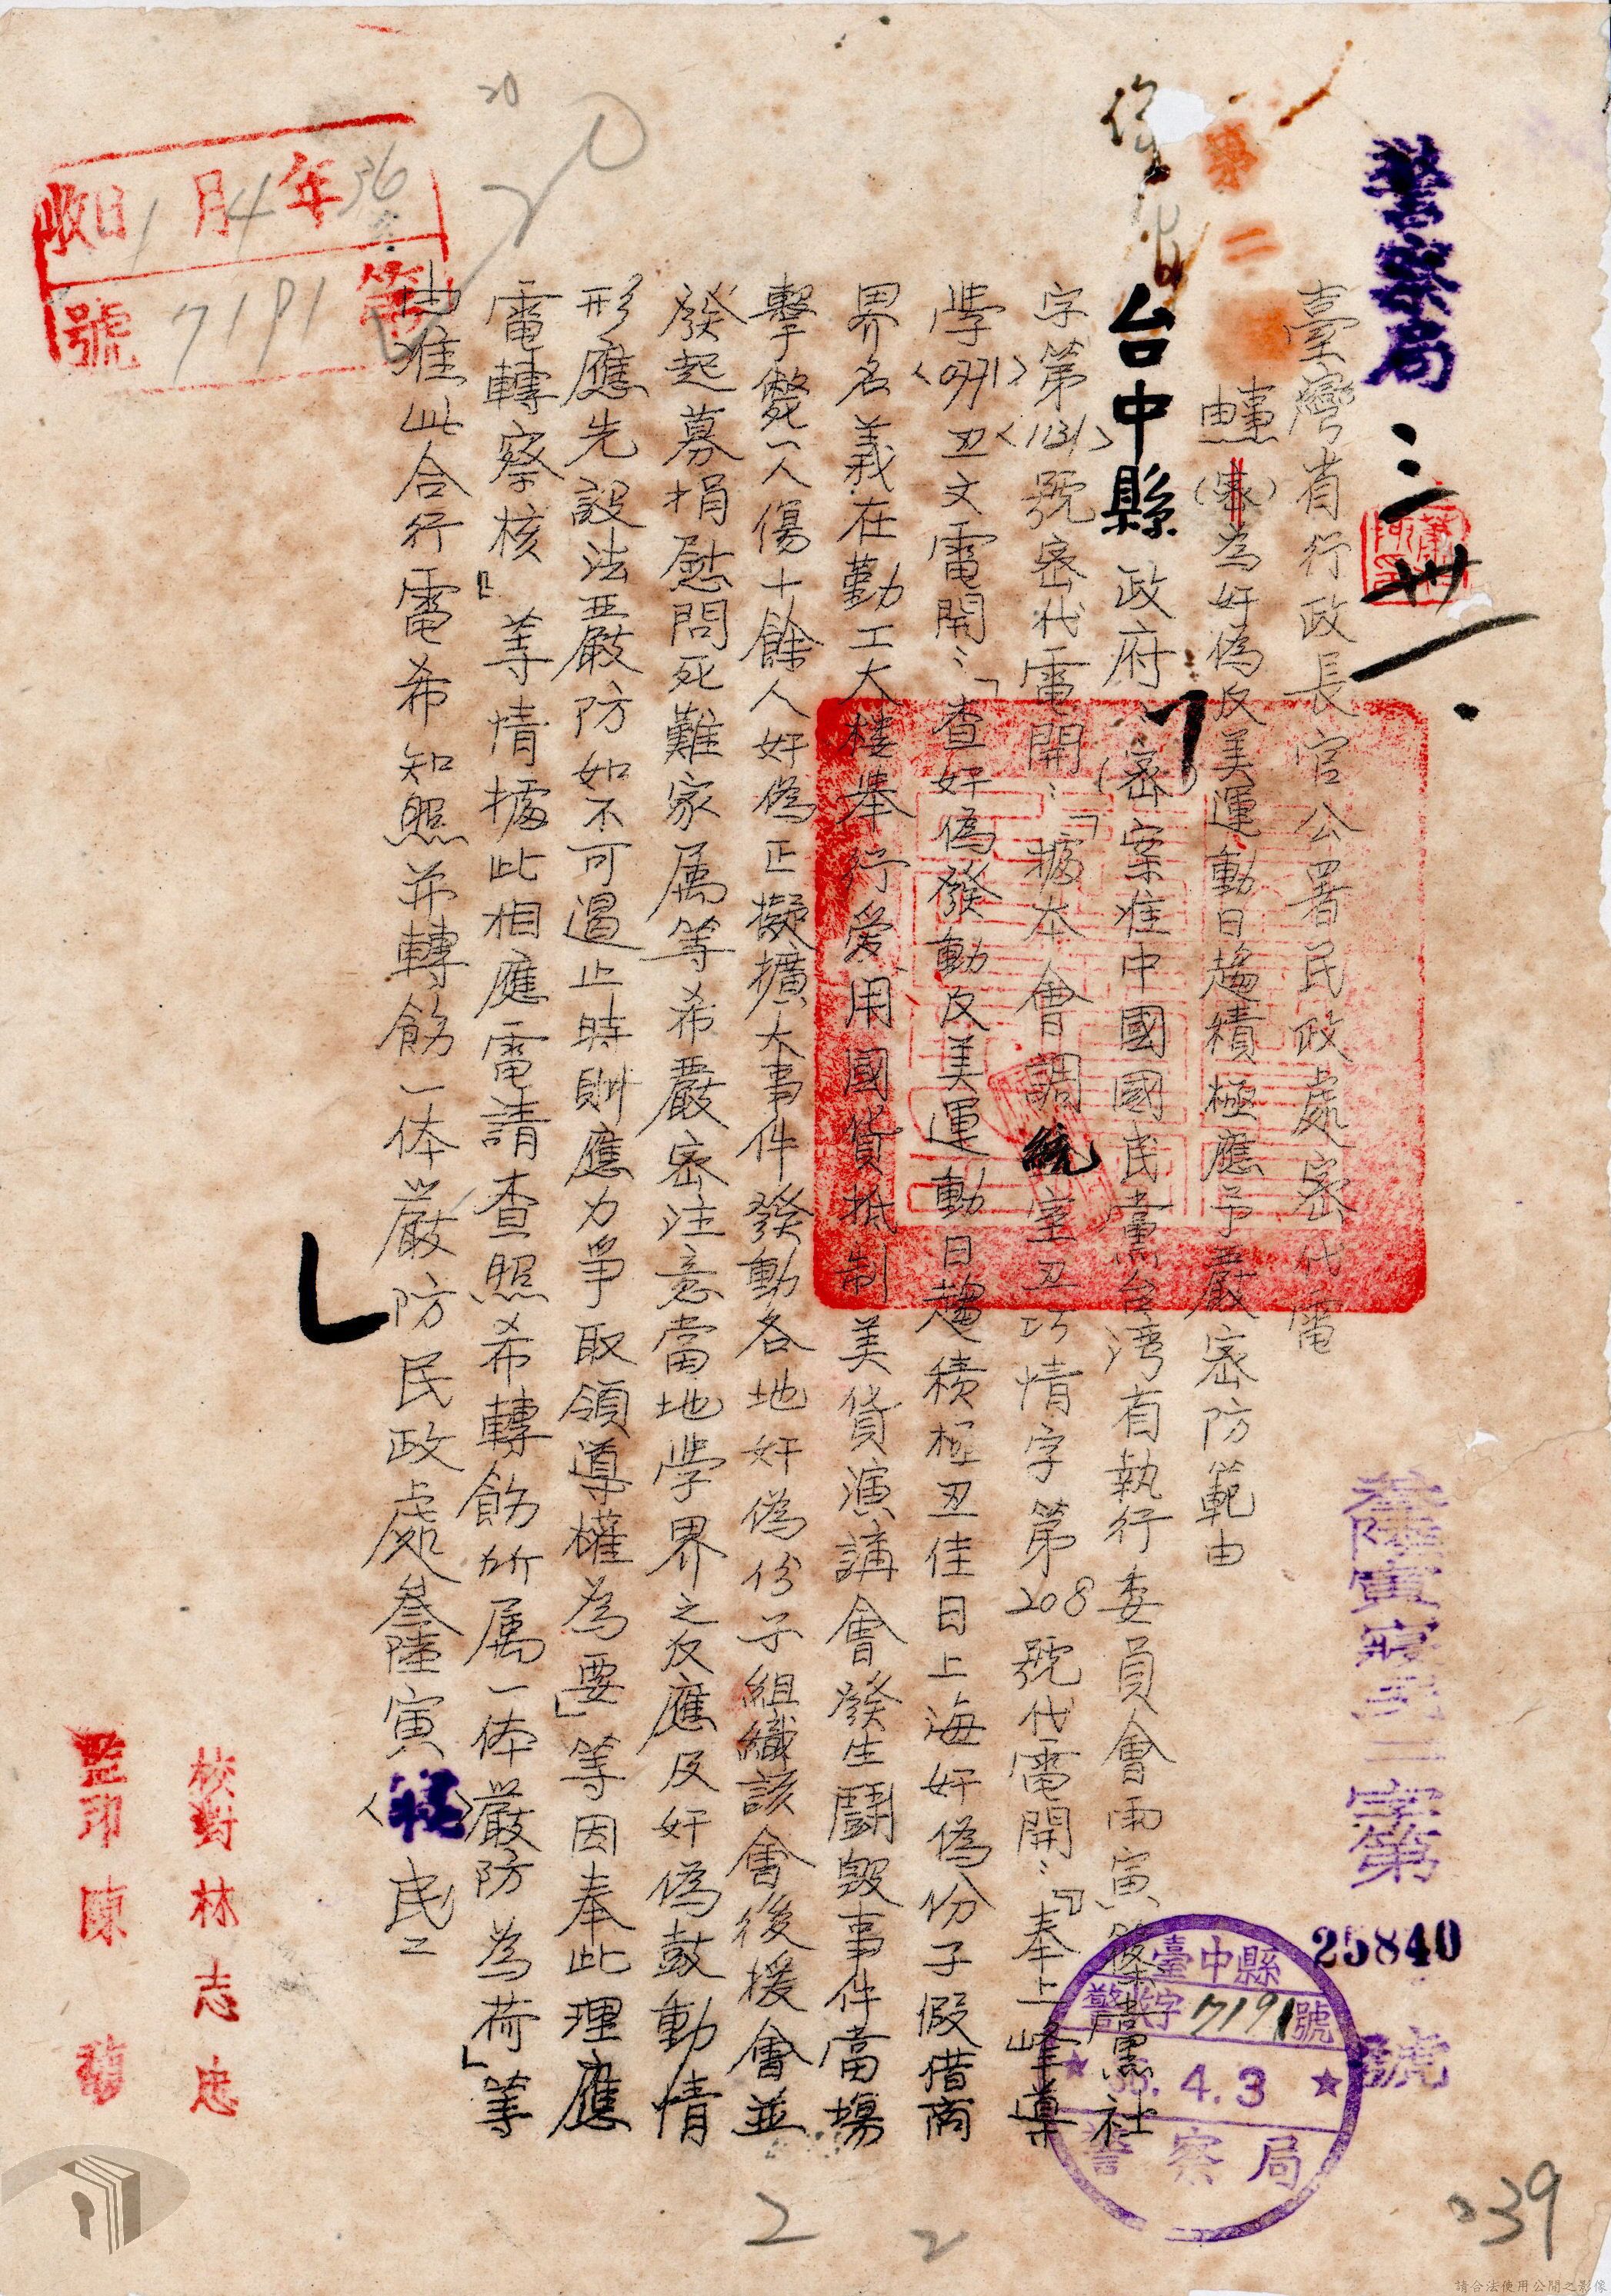 警察局
臺灣省行政長官公署民政處密代電
事由:(密)為奸偽反美運動日趨積極應予嚴密防範由
台中縣政府:(密)案准中國國民黨台湾省執行委員會雨寅篠黨社
字第(1131)號密代電開:「據本會調統室丑巧情字第208號代電開:『奉上峰導
學(0771)丑文電開:「查奸偽發動反美運動日趨積極丑佳日上海奸偽份子假借商
界名義在勤工大楼舉行爱用國貨抵制美貨演講會發生鬪毆事件當場
擊斃一人傷十餘人奸偽正擬擴大事件發動各地奸偽份子組織該會後援會並
發起募捐慰問死難家属等希嚴密注意當地學界之反應及奸偽鼓動情
形應先設法嚴防如不可遏止時則應力爭取領導權為要」等因奉此理應
電轉察核』等情據此相應電請查照希轉飭所属一体嚴防為荷」等
由准此合行電希知照并轉飭一体嚴防民政處叁陸寅( )民二
叁陸寅 民二字第
25840
號
年36月4日1收
第7191號
臺中縣
警收字7191號
36.4.3
警察局
校對林志忠
監印陳
20
20
2
2
39
請合法使用公開之影像